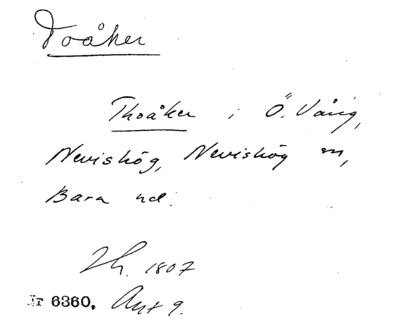 Toåker
Thoåker i Ö. Vång,
Nevishög, Nevishög sn,
Bara hd.
Lh. 1807
Nr 6360. Akt 9.